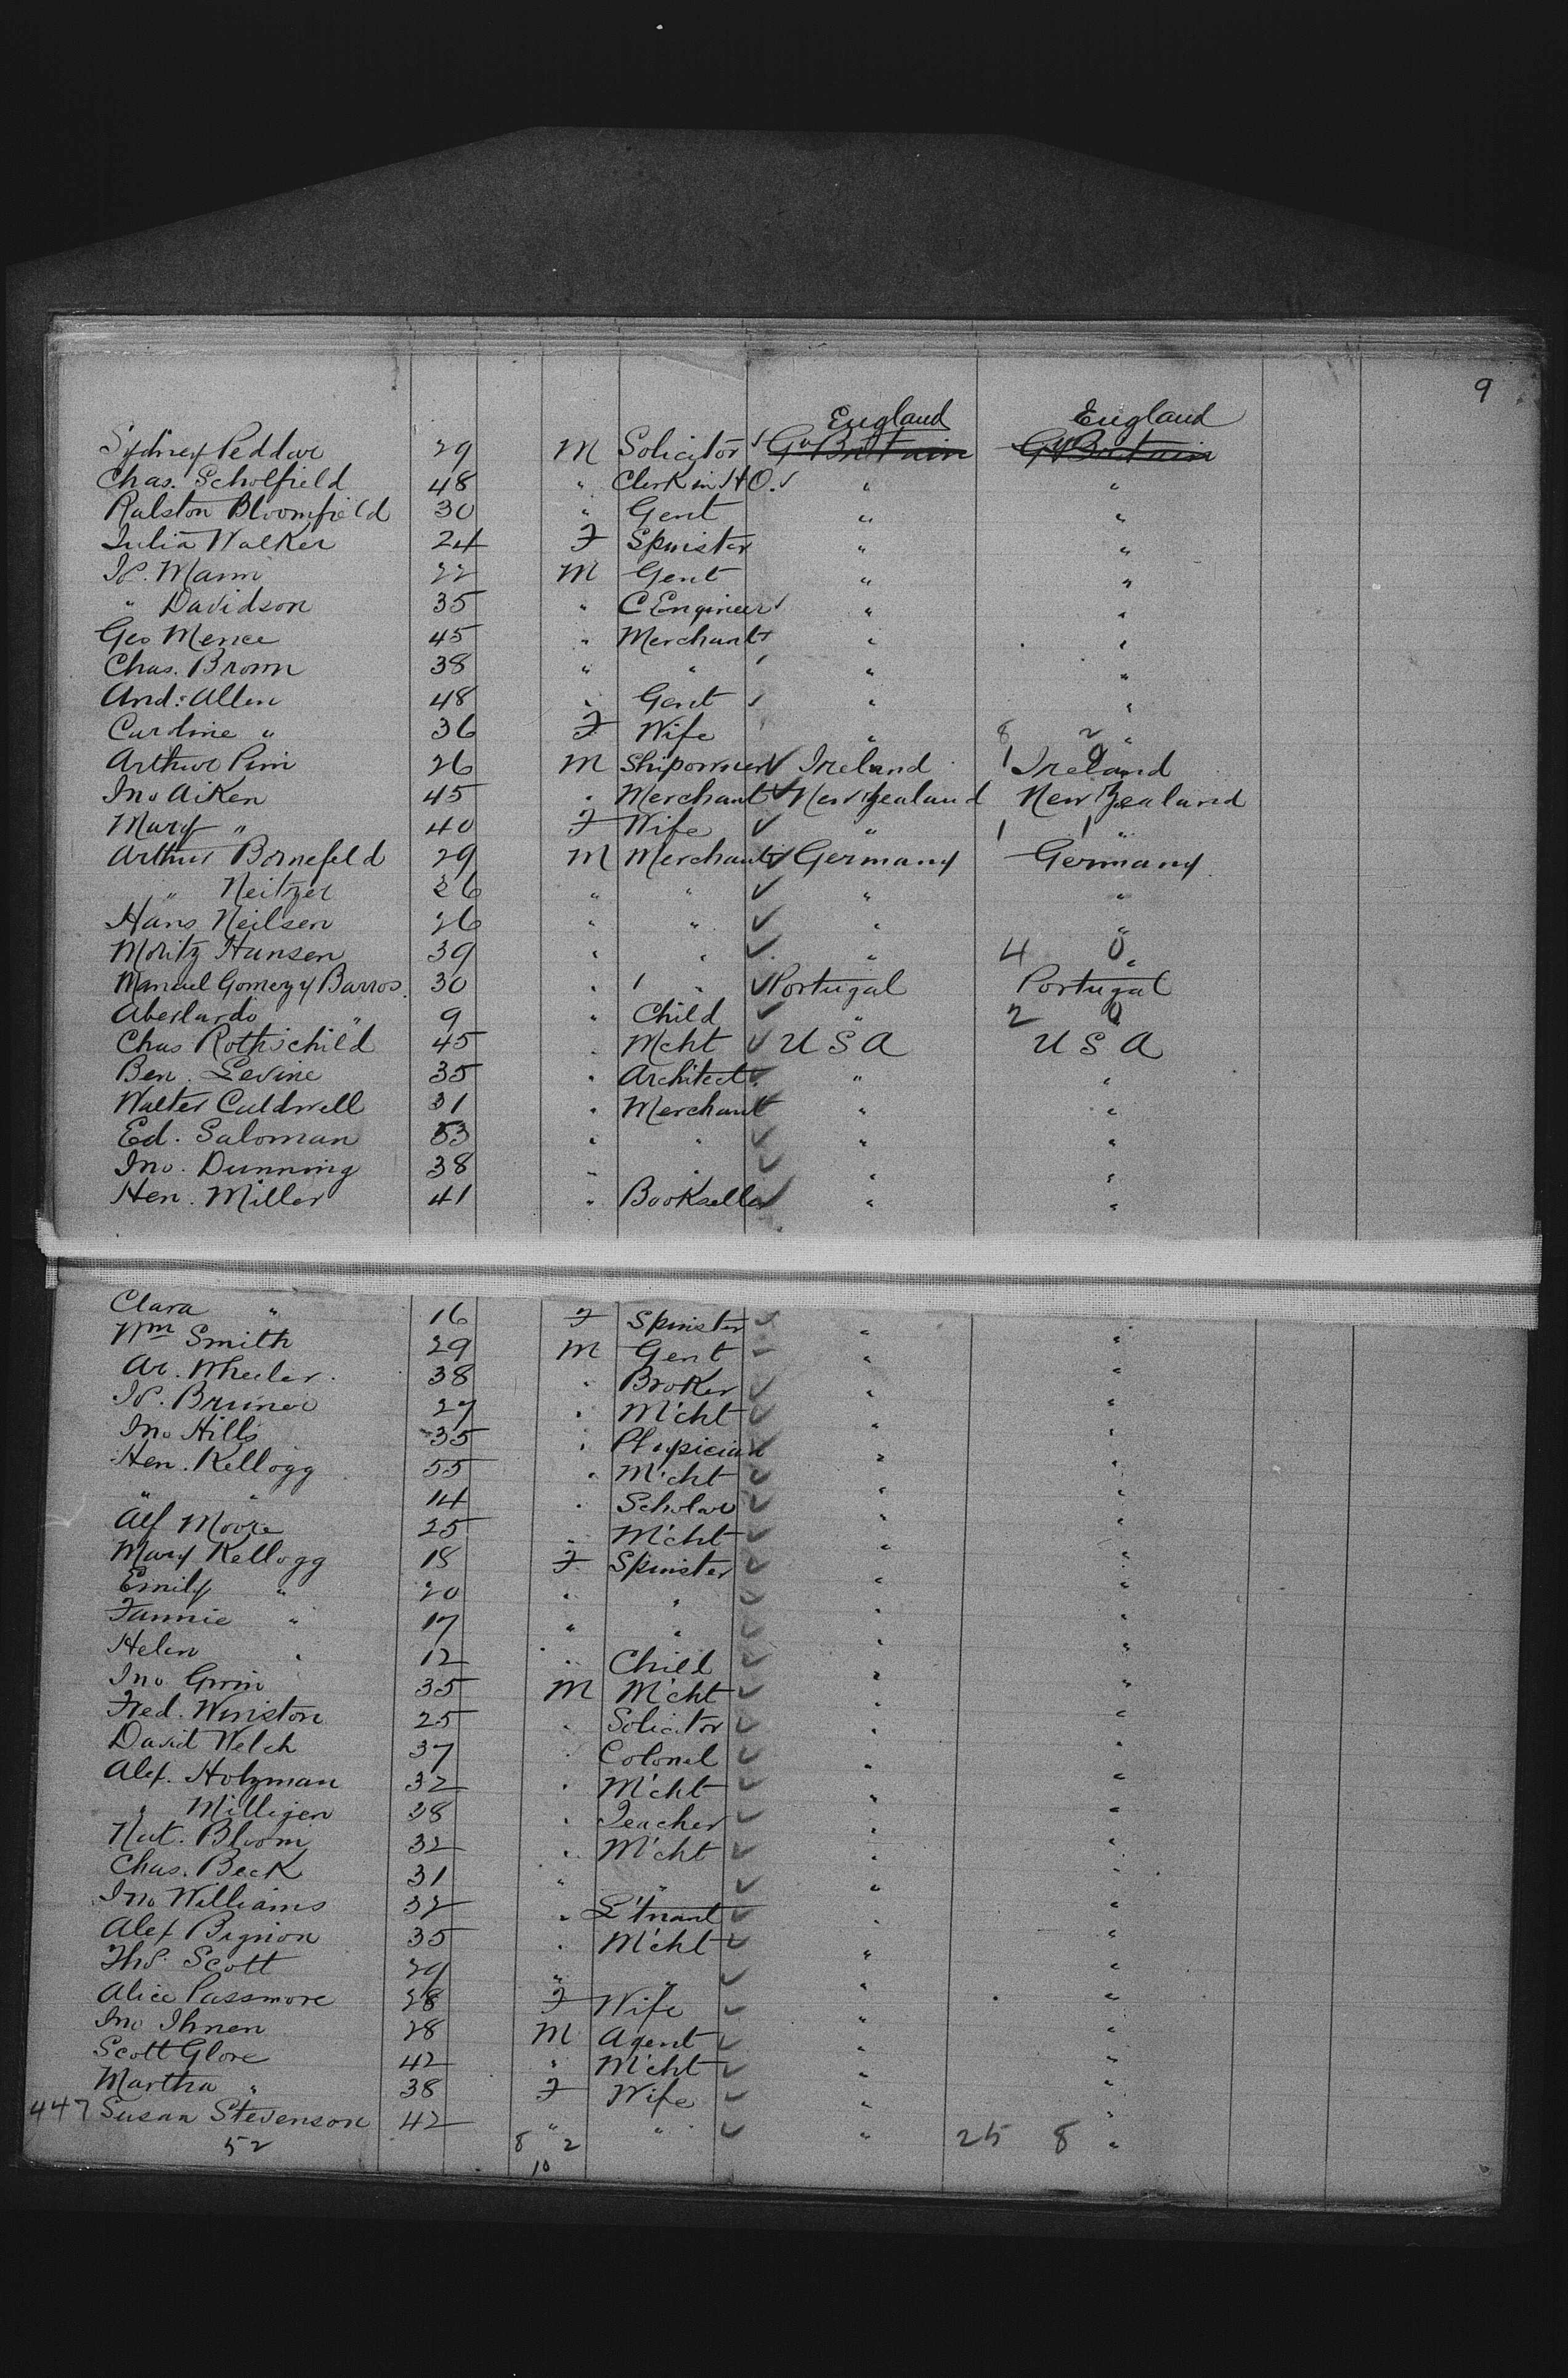 9
England England
Sydney Peddar 29 M Solicitor ✓ Gt Britain Gt Britain
Chas. Scholfield 48 " Clerk in H O. ✓ " "
Ralston Bloomfield 30 " Gent " "
Julia Walker 24 F Spinster " "
Js. Mann 22 M Gent " "
" Davidson 35 " C Engineer ✓ " "
Geo Mence 45 " Merchant ✓ " "
Chas. Brown 38 " " ✓ " "
And: Allen 48 " Gent ✓ " "
Caroline " 36 F Wife " 8 2 "
Arthur Pim 26 M Shipowner ✓ Ireland 1 0 Ireland
Jno Aiken 45 " Merchant ✓ New Zealand New Zealand
Mary " 40 F Wife ✓ " 1 1 "
Arthur Bornefeld 29 M Merchant ✓ Germany Germany
" Neitzer 26 " " ✓ " "
Hans Neilsen 26 " " ✓ " "
Moritz Hansen 39 " " ✓ " 4 0 "
Manuel Gomez y Barros 30 " " ✓ Portugal Portugal
Aberlardo " 9 " Child ✓ " 2 0
Chas Rothschild 45 " Mcht ✓ U S A U S A
Ben. Levine 35 " Architect ✓ " "
Walter Caldwell 31 " Merchant ✓ " "
Ed. Saloman 53 " " ✓ " "
Jno. Dunning 38 " " ✓ " "
Hen. Miller 41 " Bookseller ✓ " "
Clara " 16 F Spinster ✓ " "
Wm Smith 29 M Gent " "
Ar. Wheeler. 38 " Broker ✓ " "
Js. Bruner 27 " M'cht ✓ " "
Jno Hills 35 " Physician ✓ " "
Hen. Kellogg 55 " M'cht ✓ " "
" " 14 " Scholar ✓ " "
Alf Moore 25 " M'cht ✓ " "
Mary Kellogg 18 F Spinster ✓ " "
Emily " 20 " " ✓ " "
Fannie " 17 " " ✓ " "
Helen " 12 " Child ✓ " "
Jno 35 M M'cht ✓ " "
Fred. Winston 25 " Solicitor ✓ " "
David Welch 37 " Colonel ✓ " "
Alex. Holzman 32 " M'cht ✓ " "
" Milligen 38 " Teacher ✓ " "
Nat. Bloom 32 " M'cht ✓ " "
Chas. Beck 31 " " ✓ " "
Jno Williams 32 " L'tnant ✓ " "
Alex Bignon 35 " M'cht ✓ " "
Ths. Scott 29 " " ✓ " "
Alice Passmore 28 F Wife ✓ " "
Jno Ihnen 28 M Agent ✓ " "
Scott Glore 42 " M'cht ✓ " "
Martha " 38 F Wife ✓ " "
447 Susan Stevenson 42 " " ✓ " 25 8 "
52 8 2
10